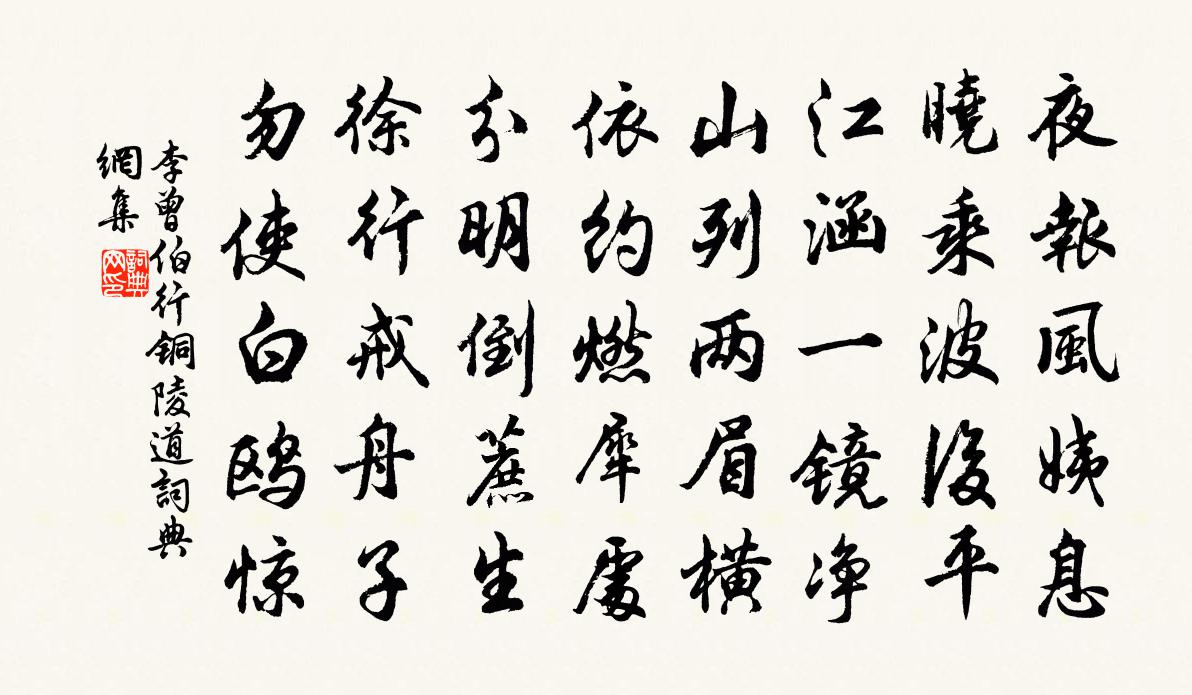 夜報風姨息
曉乘波浚平
江涵一镜净
山列两眉横
依約燃犀處
分明倒蔗生
徐行戒舟子
勿使白鸥惊
李曾伯行銅陵道詞典
網集
詞典
网印